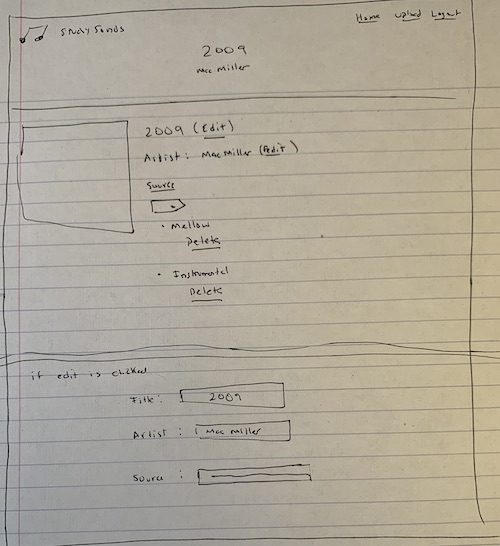 Study Sounds
Home Upload Logout
2009
Mac Miller
2009 (Edit)
Artist: Mac Miller (Edit)
Source
• Mellow
Delete
• Instrumental
Delete
if edit is clicked
Title: 2009
Artist : Mac Miller
Source :